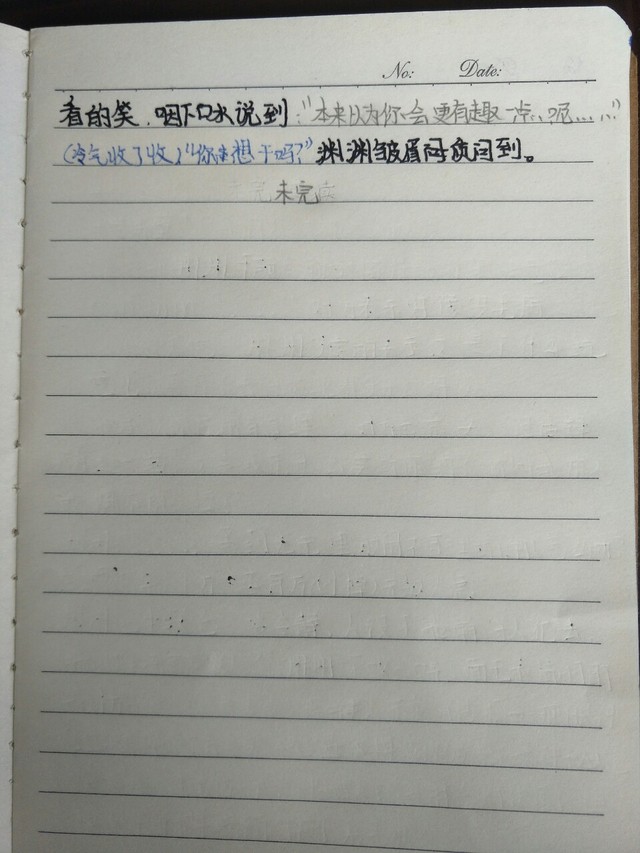 No: Date:
看的笑.咽下口水说到:"本来以为你会更有趣一点..呢......"
(冷气收了收)"你来想干吗?"渊渊皱眉间质问到。
未完